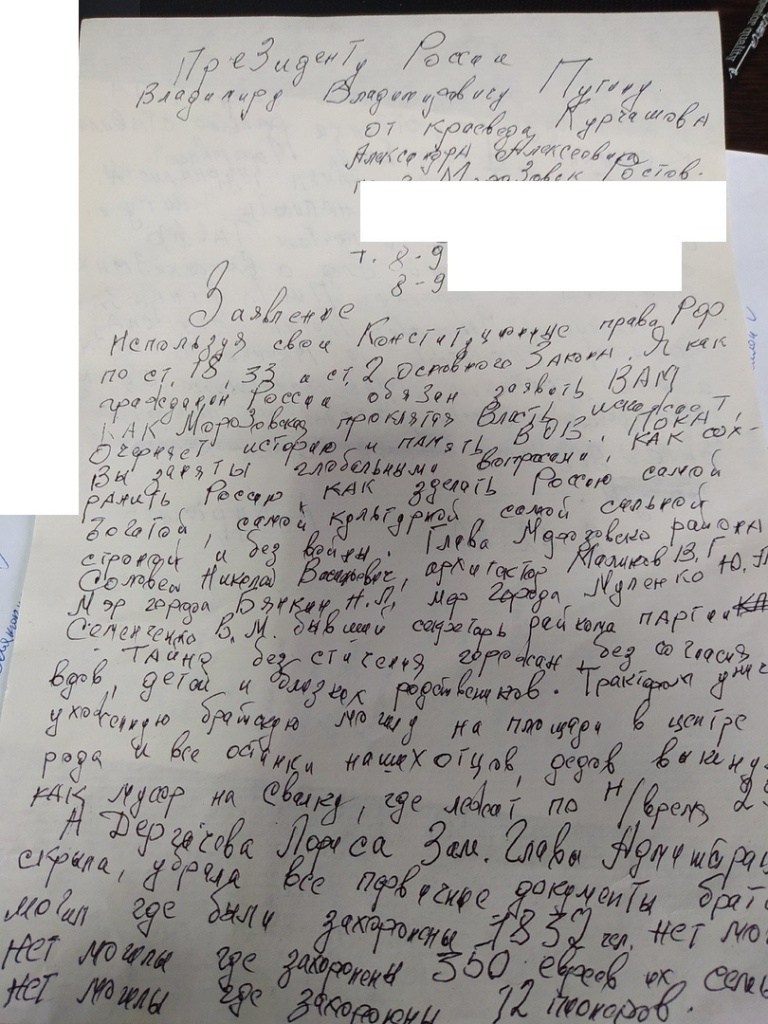 Президенту России
Владимиру Владимировичу Путину.
от краеведа Курчашова
Александра Алексеевича
Морозовск Ростов.
т. 8-9
8-9
Заявление
Используя свои Конституционные права РФ
по ст. 18, 33 и ст. 2 Основного Закона. Я как
гражданин России обязан заявить ВАМ
КАК Морозовская проклятая Власть искажает,
Очерняет историю и память ВОВ. ПОКА
Вы заняты глобальными вопросами, КАК сох-
ранить Россию КАК зделать Россию самой
богатой, самой культурной самой сильной
страной и без войны. Глава Морозовско района
Соловей Николай Васильевич, архитектор Маликов В. Г
Мэр города Бянкин Н.П, мэр города Муленко Ю.
Семенченко В.М. бывший секретарь райкома партии
Тайно без стичения горожан, без согласия
вдов, детей и близких родственников. Трактором
ухоженную братскую могилу на площади в центре
рода и все останки наших отцов, дедов выкину
КАК мусор на Свалку, где лежат по н/время
А Дергачова Лориса Зам. Главы Администрац
скрыла, убрала все первичные документы брат
могил где были захоронены 1832 чел. НЕТ мо
НЕТ могилы где захоронены 350 евреев их семь
НЕТ могилы где захоронены 12 пионеров.